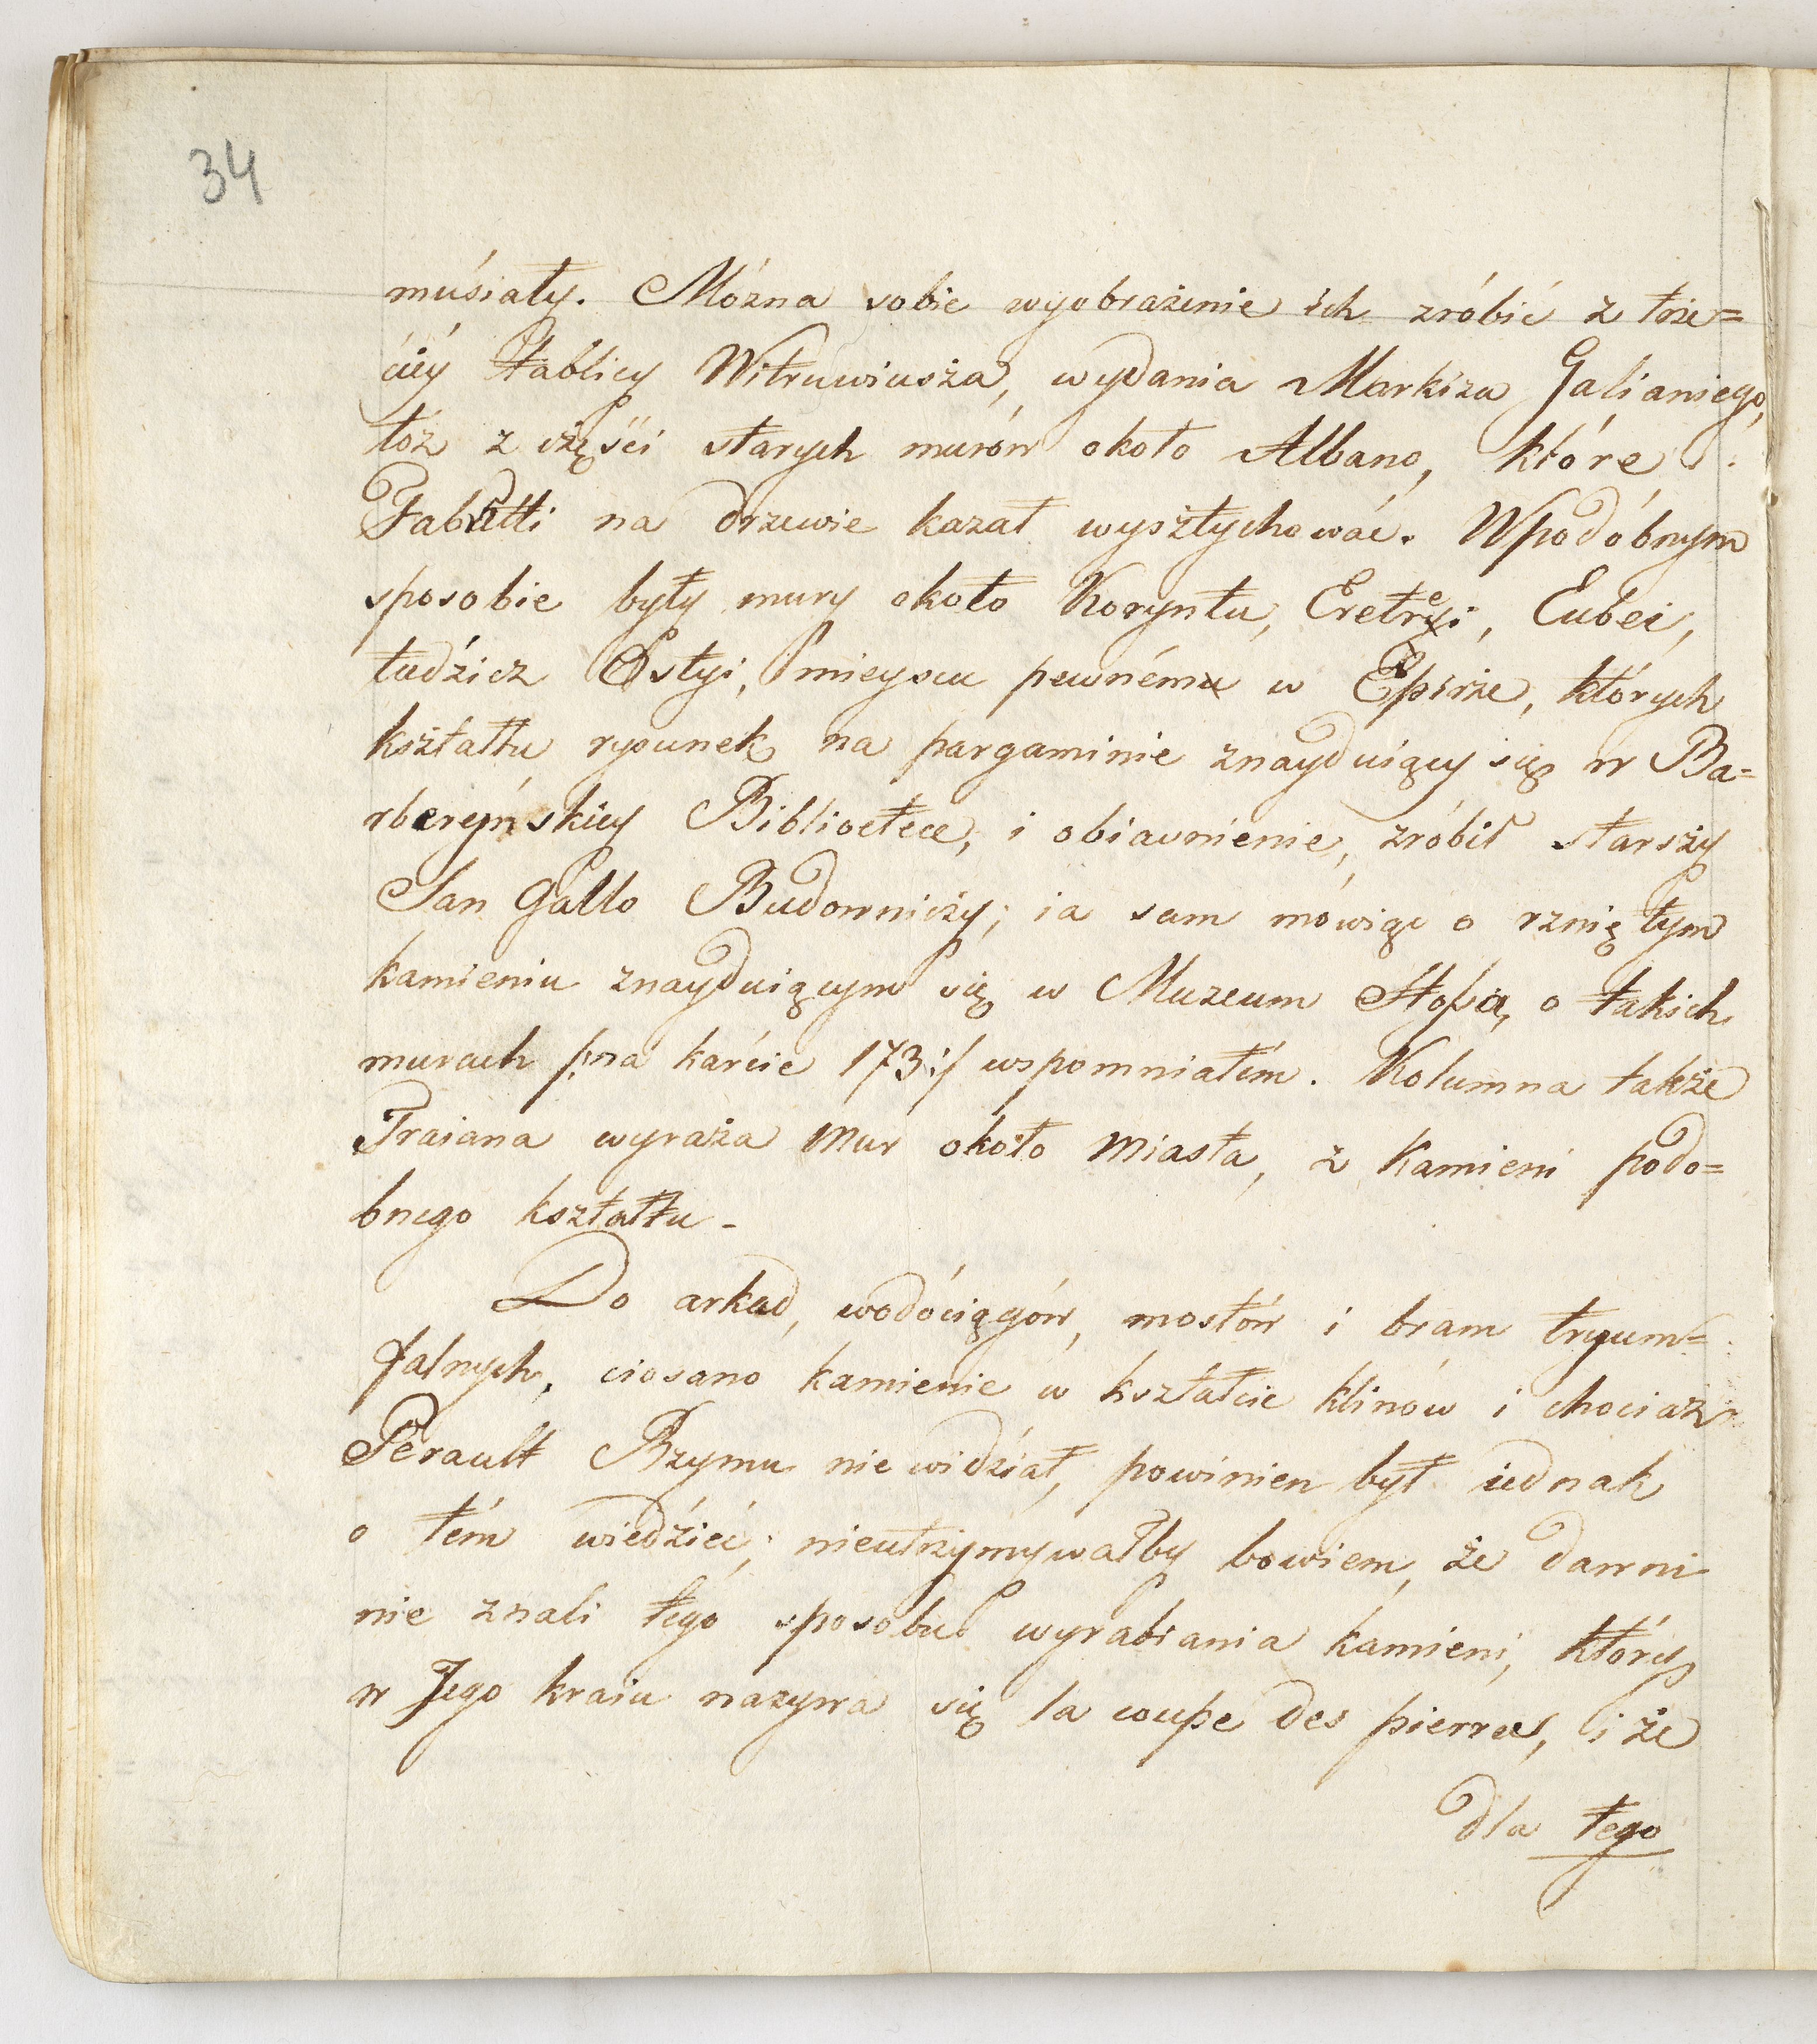 34
muśiały. Można sobie wyobrażenie ich zróbić z trze=
ciéy tablicy Witruwiusza, wydania Markiza Galianiego,
tóż z części starych murów około Albano, które
Fabretti na drzewie kazał wysztychować. W podóbnym
sposobie były mury około Koryntu, Eretrei, Eubei,
tudźież Ostyi, i mieyscu pewném w Epirze, których
kształtu rysunek na pargaminie znayduiący się w Ba=
rberyńskiey Biblioetece, i obiaśnienie, zróbił starszy
San Gallo Budowniczy; ia sam mówiąc o rzniętym
kamieniu znayduiącym się w Muzeum Stosza, o takich
murach /:na karcie 173:/ wspomniałém. Kolumna także
Traiana wyraża mur około miasta, z kamieni podo=
bnego kształtu.
Do arkad, wodóciągów, mostów i bram tryum=
falnych, ciosano kamienie w kształcie klinów i chociaż
Perault Rzymu nie widźiał, powinien był iednak
o tém wiedźieć; nieutrzymywałby bowiem, że dawni
nie znali tego sposobu wyrabiania kamieni, który
w Jego kraiu nazywa się la coupe des pierres, i że
dla tego